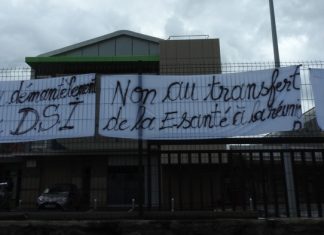 démantèlement
DSI
Non au transfert
de la Esanté à la réunion